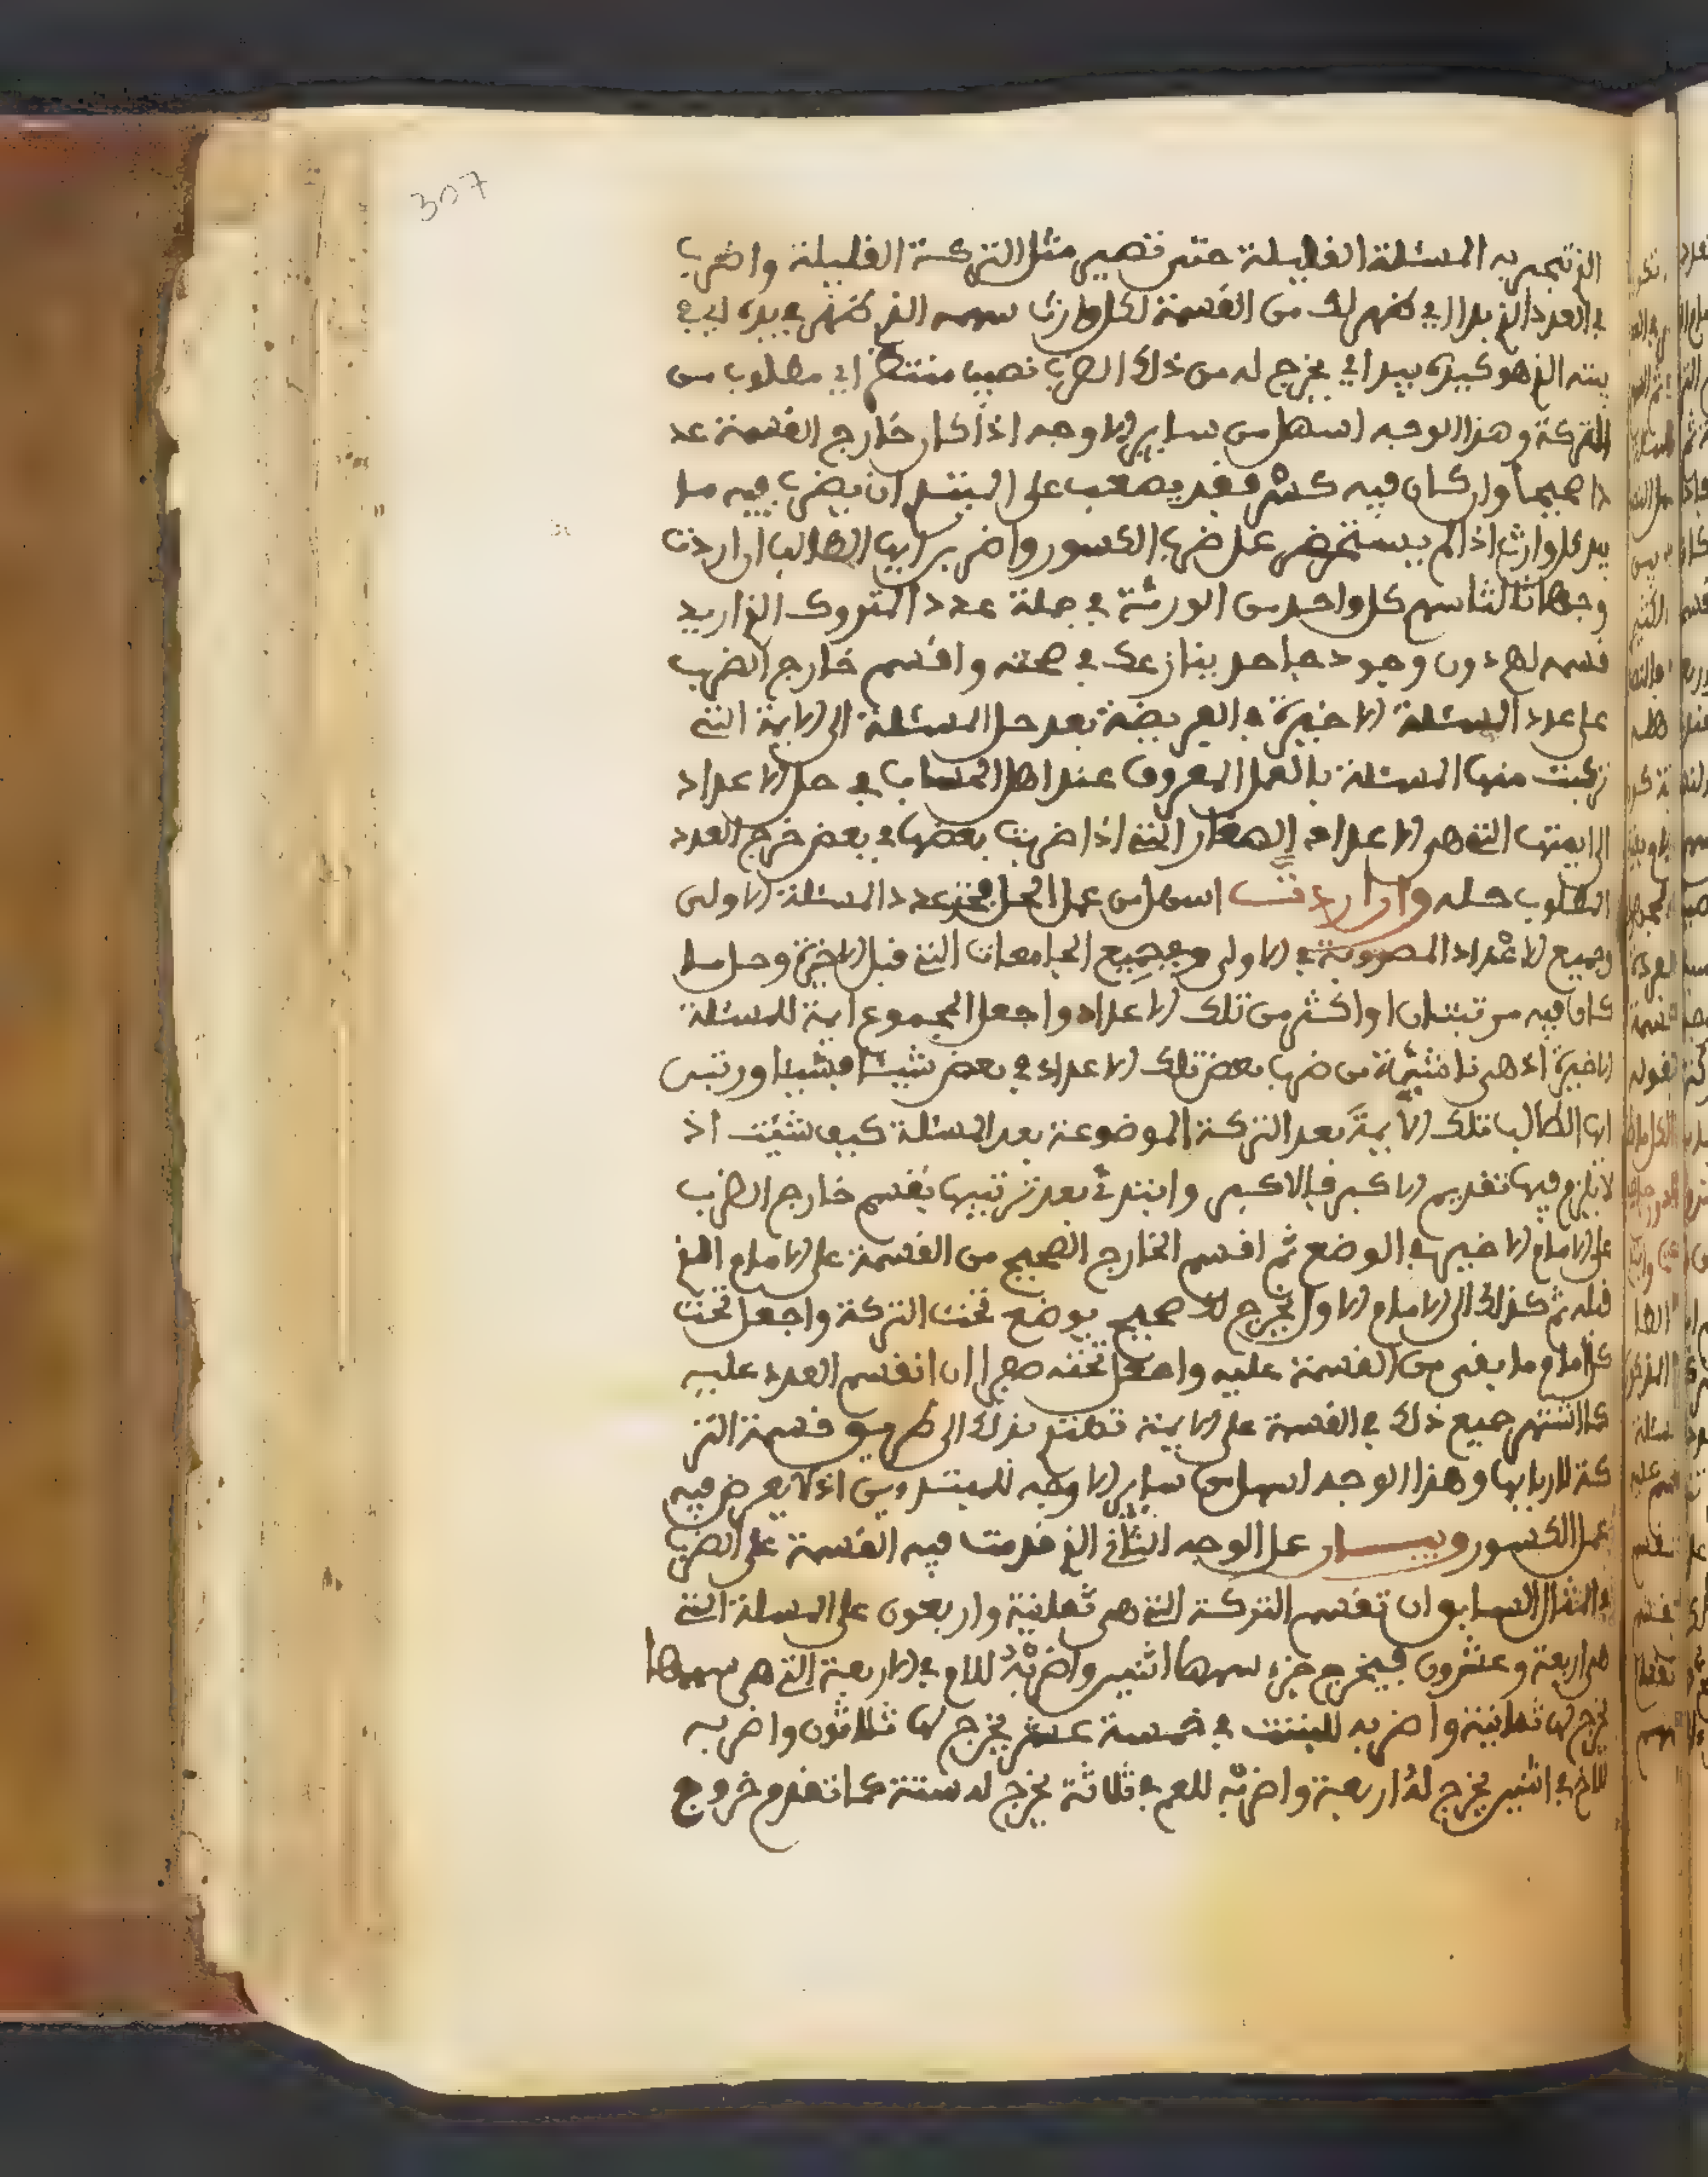 307
الذي تجبر به المسئلة القليلة حتى تصير مثل التركة القليلة واضرب
في العدد الذي بدا اي ظهر لك من القسمة لكل وارث سهمه الذي ظهر في يده اي في
بيته الذي هو كيده بيدا اي يخرج له من ذلك الضرب نصيب منتظم اي مطلوب من
التركة وهذا الوجه اسهل من ساير الاوجه اذا كان خارج القسمة عد
دا صحيحا وان كان فيه كسر فقد يصعب على المبتدي ان يضرب فيه ما
بيد كل وارث اذا لم يستحضر عمل ضرب الكسور واضرب ايها الطالب ان اردت
وجها ثالثا سهم كل واحد من الورثة في جملة عدد المتروك الذي اريد
قسمه لهم دون وجود جاحد ينازعك في صحته واقسم خارج الضرب
على عدد المسئلة الاخيرة في الفريضة بعد حل المسئلة الى الايمة التي
تركبت منها المسئلة بالعمل المعروف عند اهل الحساب في حل الاعداد
الى ايمتها التي هي الاعداد الصغار التي اذا ضربت بعضها في بعض خرج العدد
المطلوب حله وان اردت اسهل من عمل الحل فخذ عدد المسئلة الاولى
وجميع الاعداد المضروبة في الاولى وجميع الجامعات التي قبل الاخيرة وحل ما
كان فيه مرتبتان او اكثر من تلك الاعداد واجعل المجموع ايمة للمسئلة
الاخيرة اذ هي ناشئة من ضرب بعض تلك الاعداد في بعض شيئا فشيئا ورتبن
ايها الطالب تلك الايمة بعد التركة الموضوعة بعد المسئلة كيف شئت اذ
لا يلزم فيها تقديم الاكبر فالاكبر وابتدئ بعد ترتيبها بقسم خارج الضرب
على الامام الاخير في الوضع ثم اقسم الخارج الصحيح من القسمة على الامام الذي
قبله ثم كذلك الى الامام الاول يخرج لك صحيح يوضع تحت التركة واجعل تحت
كل امام ما بقي من القسمة عليه واجعل تحته صفرا ان انقسم العدد عليه
كما اشتهر جميع ذلك في القسمة على الايمة تهتد بذلك الى طريق قسمة التر
كة لاربابها وهذا الوجه اسهل من ساير الاوجه للمبتديين اذ لا يعرض فيه
عمل الكسور وبيان عمل الوجه الثاني الذي قدمت فيه القسمة على الضرب
في المثال السابق ان تقسم التركة التي هي ثمانية واربعون على المسئلة التي
هي اربعة وعشرون فيخرج جزء سهمها اثنين واضربه للام في الاربعة التي هي سهمها
يخرج لها ثمانية واضربه للبنت في خمسة عشر يخرج لها ثلاثون واضربه
للاخ في اثنين يخرج له اربعة واضربه للعم في ثلاثة يخرج له ستة كما تقدم خروج